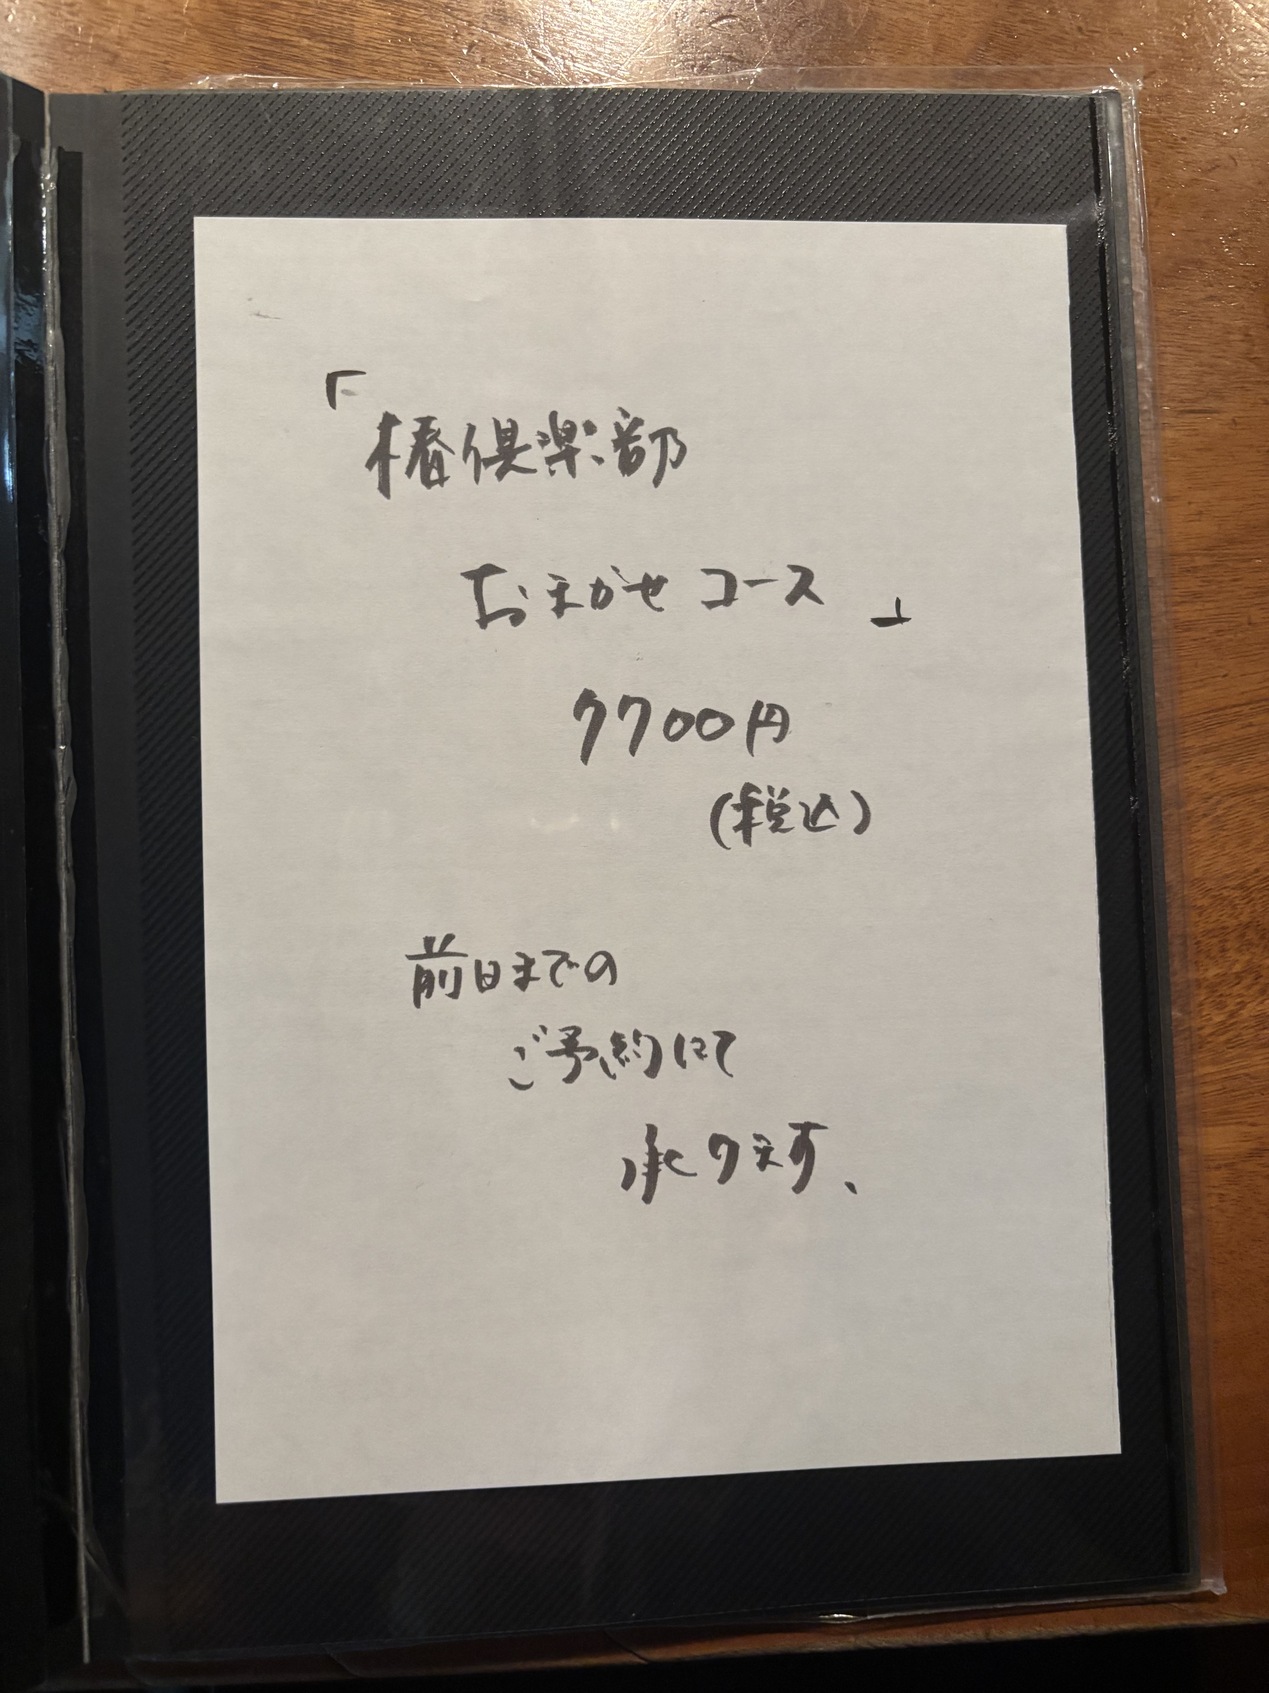 「椿倶楽部
おまかせコース」
7700円
(税込)
前日までの
ご予約にて
承ります、